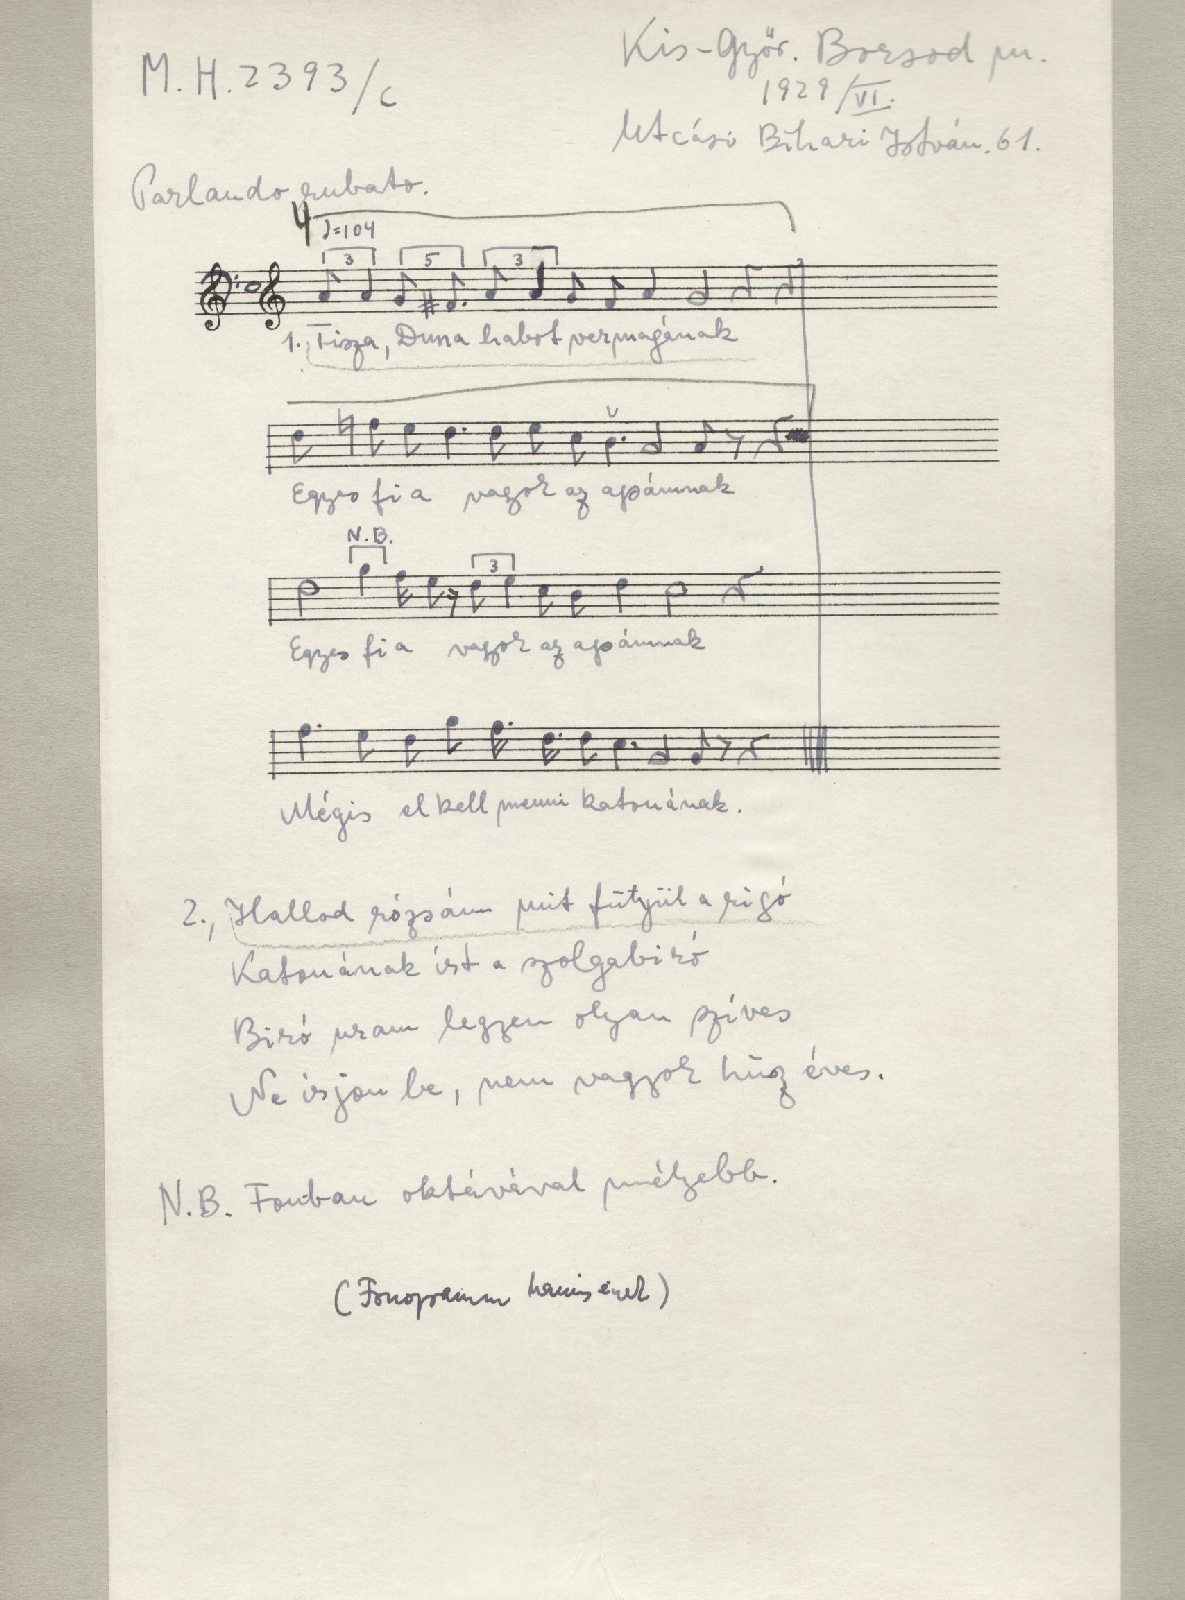 M.H. 2393/c
Kis-Győr. Borsod m.
1929/VI.
Utcási Bihari István. 61.
Parlando rubato.
4
♩=104
3 5 3
1. Tisza, Duna habot ver magának
Egyes fia vagyok az apámnak
N.B.
3
Egyes fia vagyok az apámnak
Mégis el kell menni katonának.
2., Hallod rózsám mit fütyül a rigó
Katonának írt a szolgabiró
Biró uram legyen olyan szíves
Ne irjon be, nem vagyok húsz éves.
N.B. Fonban oktávával mélyebb.
(Fonogramm hamis ének)